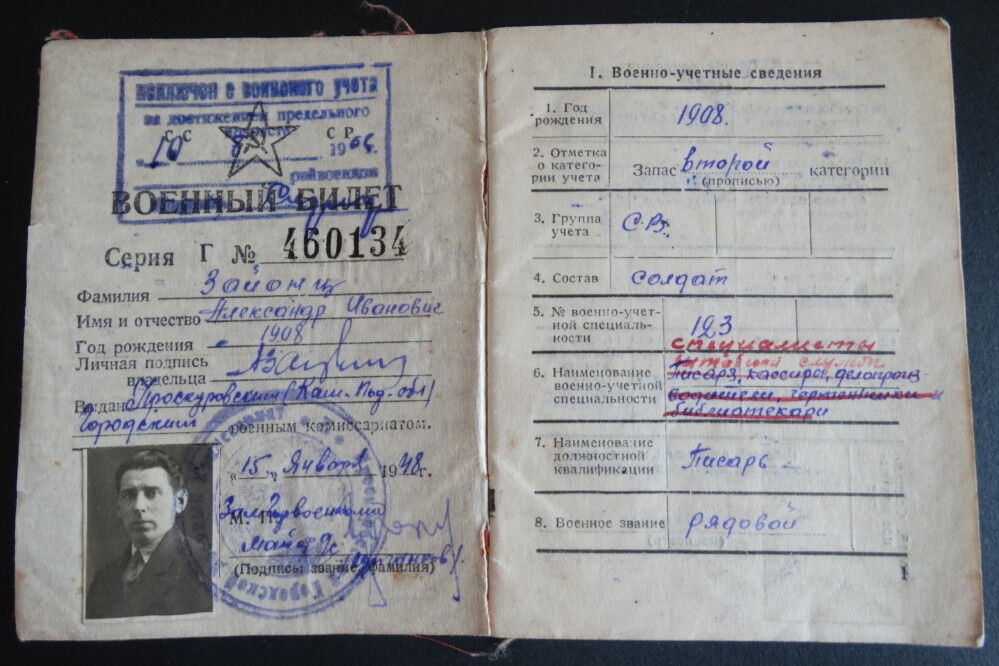 исключен с воинского учета
за достижением предельного
возраста
С С С Р
10 1966.
райвоенком
ВОЕННЫЙ БИЛЕТ
Серия Г № 460134
Фамилия Зайонц
Имя и отчество Александр Иванович
Год рождения 1908
Личная подпись
владельца
Выдан Проскуровским (Кам-Под-обл)
Городским военным комиссариатом.
„15„ Января 1948г.
М. П.
майор
(Подпись, звание, фамилия)
I. Военно-учетные сведения
1. Год
рождения 1908.
2. Отметка
о катего-
рии учета Запас второй категории
(прописью)
3. Группа
учета С.В.
4. Состав солдат
5. № военно-учет-
ной специаль-
ности 123
специалисты
штабной службы
6. Наименование
военно-учетной
специальности Писаря, кассиры, делопроиз-
водители, чертежники и
библиотекари
7. Наименование
должностной
квалификации Писарь -
8. Военное звание рядовой
1